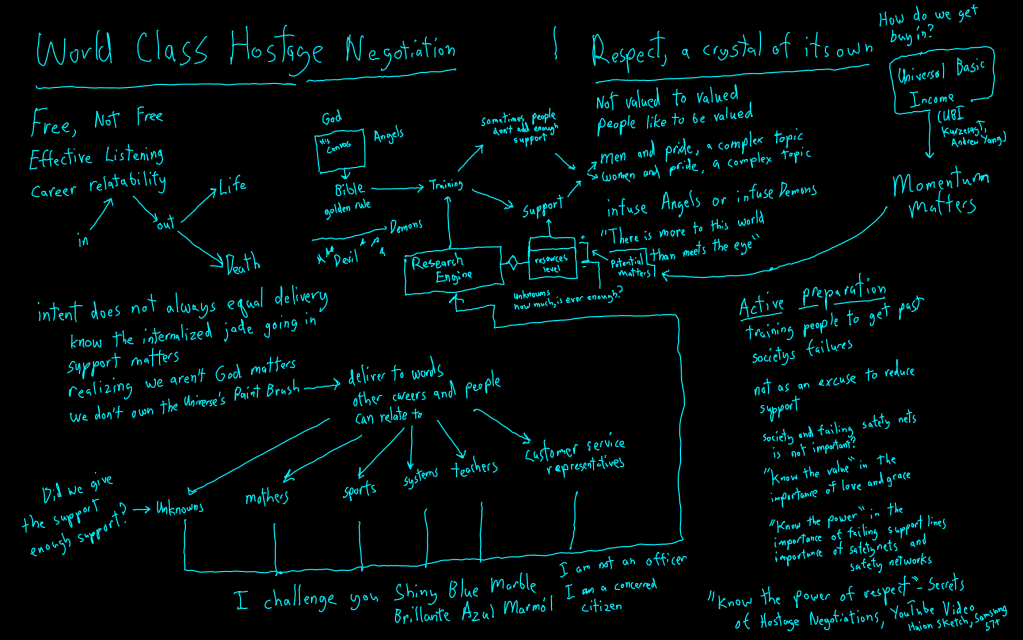 World Class Hostage Negotiation
Respect, a crystal of its own
How do we get
buy in?
Universal Basic
Income
(UBI
Kurzesagt,
Andrew Yang)
Momentum
matters
Free, Not Free
Effective Listening
Career relatability
in
out
Life
Death
God
His
Canvas
Angels
Bible
golden rule
Demons
Devil
Training
sometimes people
don't add enough
support
support
Research
Engine
resources
level
+
-
Potential
matters
unknowns
how much, is ever enough?
Not valued to valued
People like to be valued
men and pride, a complex topic
women and pride, a complex topic
infuse Angels or infuse Demons
"There is more to this world
than meets the eye"
intent does not always equal delivery
know the internalized jade going in
support matters
realizing we aren't God matters
we don't own the Universe's Paint Brush
deliver to words
other careers and people
can relate to
Did we give
the support
enough support?
Unknowns
mothers
sports
systems
teachers
customer service
representatives
Active preparation
training people to get past
societys failures
not as an excuse to reduce
support
society and failing safety nets
is not important?
"Know the value" in the
importance of love and grace
"Know the power" in the
importance of failing support lines
importance of safety nets and
safety networks
I challenge you Shiny Blue Marble
Brillante Azul Marmól
I am not an officer
I am a concerned
citizen
"Know the power of respect" - Secrets
of Hostage Negotiations, YouTube Video
Huion Sketch, Samsung
S7+